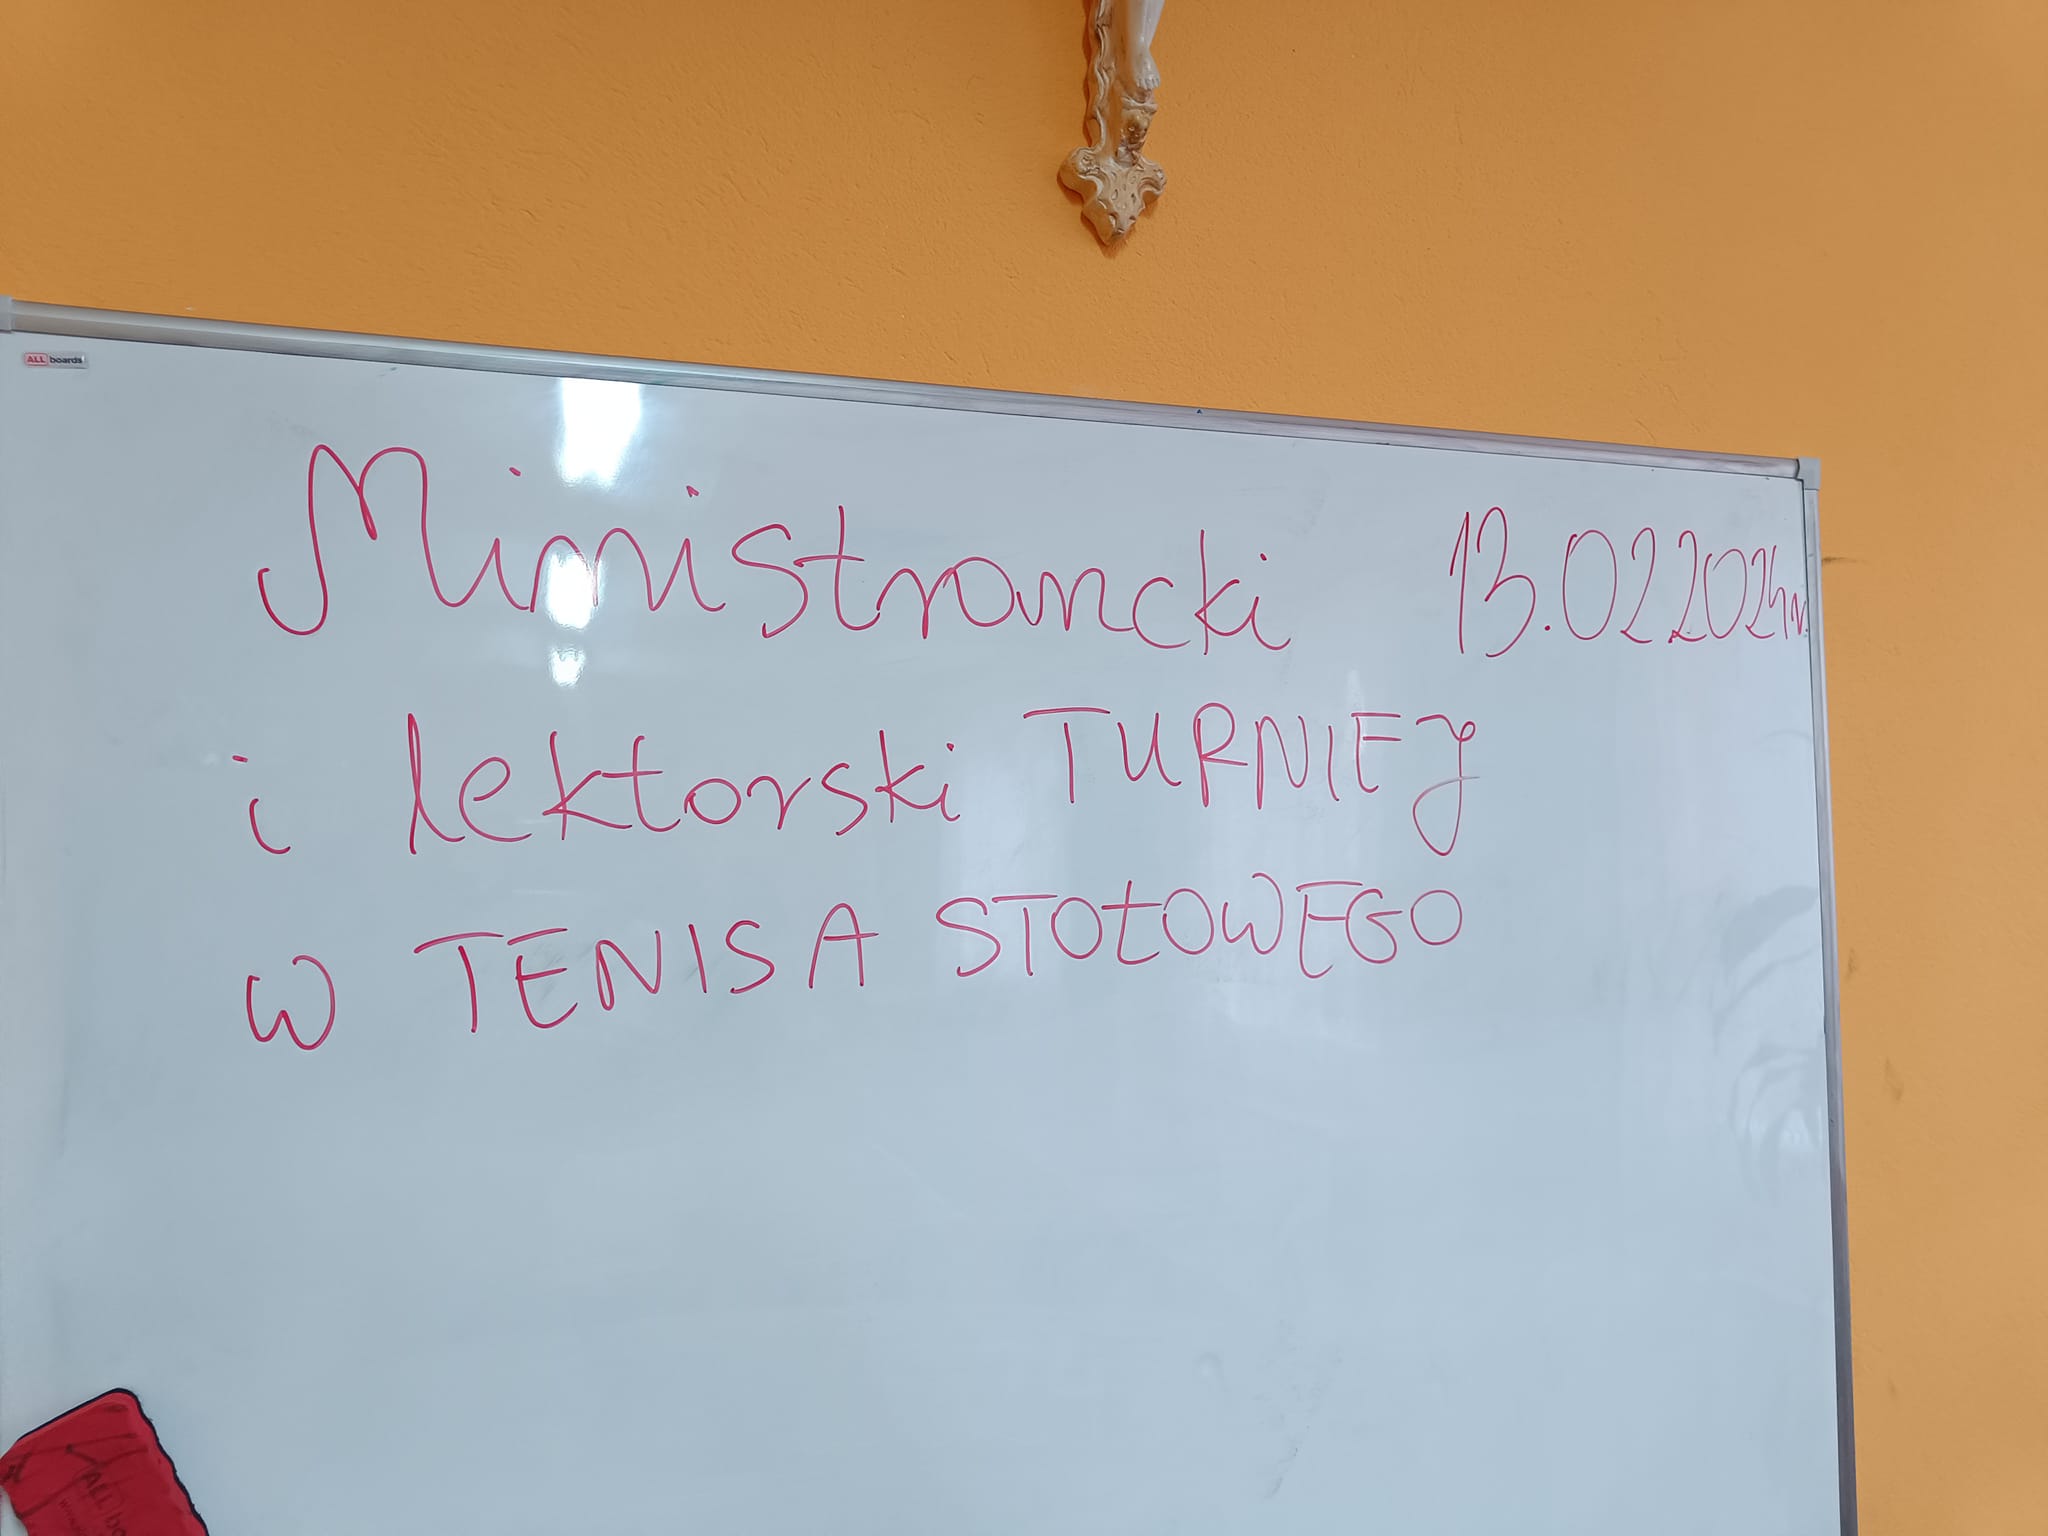 ALL boards
Ministrancki 13.02.2024r.
i lektorski TURNIEJ
w TENISA STOŁOWEGO